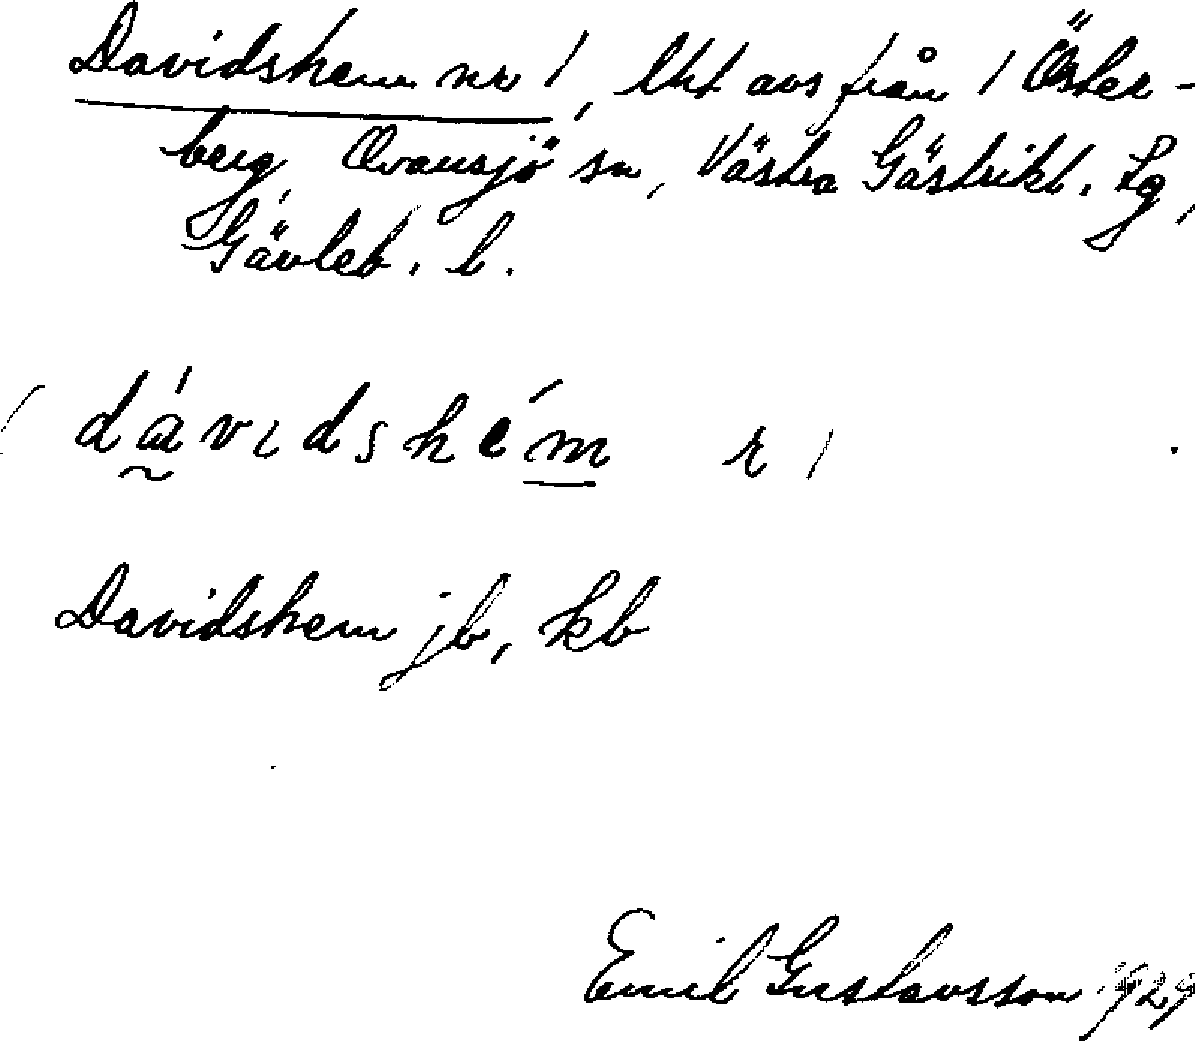 Davidshem nr 1, lht avs från 1 Öster-
berg, Ovansjö sn, Västra Gästrikl. tg,
Gävleb. l.
dávıdshém r
Davidshem jb, kb
Emil Gustavsson 1929